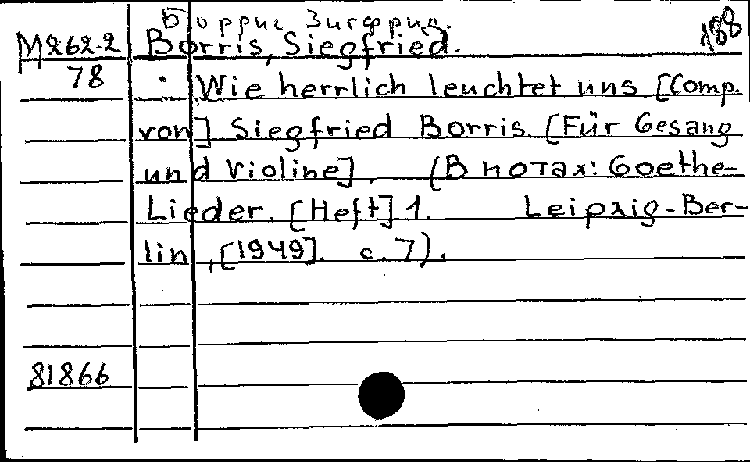 Боррис, Зигфрид.
188
М262-2 Borris, Siegfried.
78 Wie herrlich leuchtet uns [Comp.
von] Siegfried Borris. [Für Gesang
und Violine]. (В нотах: Goethe-
Lieder. [Heft] 1. Leipzig-Ber-
lin, [1949]. с. 7).
81866